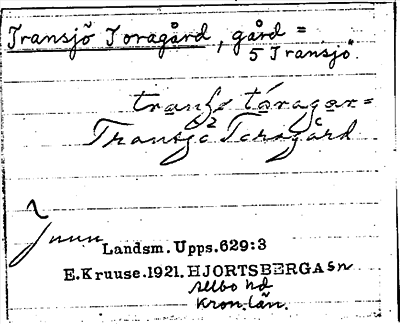 Transjö Toragård, gård =
5 Transjö.
Transjö Toragård
Landsm. Upps. 629:3
E. Kruuse. 1921. HJORTSBERGA sn
Allbo hd
Kron. län.